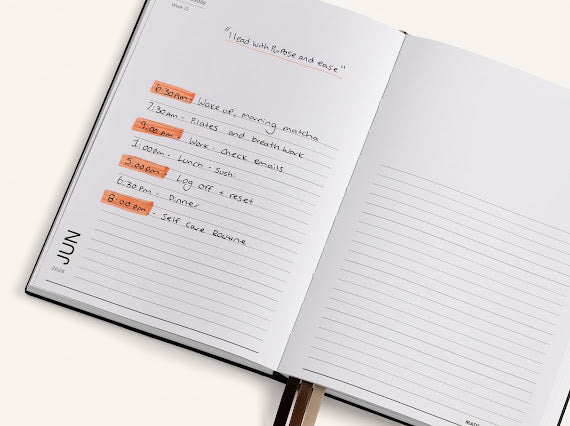 Week 25
"I lead with Purpose and ease"
6:30am - Wake up, morning matcha
7:30am - Pilates and breathwork
9:00am - Work - Check emails
1:00pm - Lunch - Sushi
5:00pm - Log off + reset
6:30pm - Dinner
8:00pm - Self Care Routine
JUN
2026